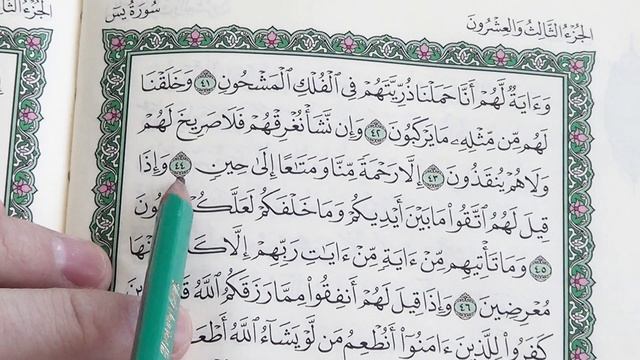 الجزء الثالث والعشرون
سورة يس
وَءَايَةٌ لَّهُمْ أَنَّا حَمَلْنَا ذُرِّيَّتَهُمْ فِي الْفُلْكِ الْمَشْحُونِ ٤١ وَخَلَقْنَا
لَهُم مِّن مِّثْلِهِ مَا يَرْكَبُونَ ٤٢ وَإِن نَّشَأْ نُغْرِقْهُمْ فَلَا صَرِيخَ لَهُمْ
وَلَا هُمْ يُنقَذُونَ ٤٣ إِلَّا رَحْمَةً مِّنَّا وَمَتَاعًا إِلَىٰ حِينٍ ٤٤ وَإِذَا
قِيلَ لَهُمُ اتَّقُوا مَا بَيْنَ أَيْدِيكُمْ وَمَا خَلْفَكُمْ
٤٥ وَمَا تَأْتِيهِم مِّنْ ءَايَةٍ مِّنْ ءَايَاتِ رَبِّهِمْ إِلَّا
مُعْرِضِينَ ٤٦ وَإِذَا قِيلَ لَهُمْ أَنفِقُوا مِمَّا رَزَقَكُمُ اللَّهُ
كَفَرُوا لِلَّذِينَ ءَامَنُوا أَنُطْعِمُ مَن لَّوْ يَشَاءُ اللَّهُ